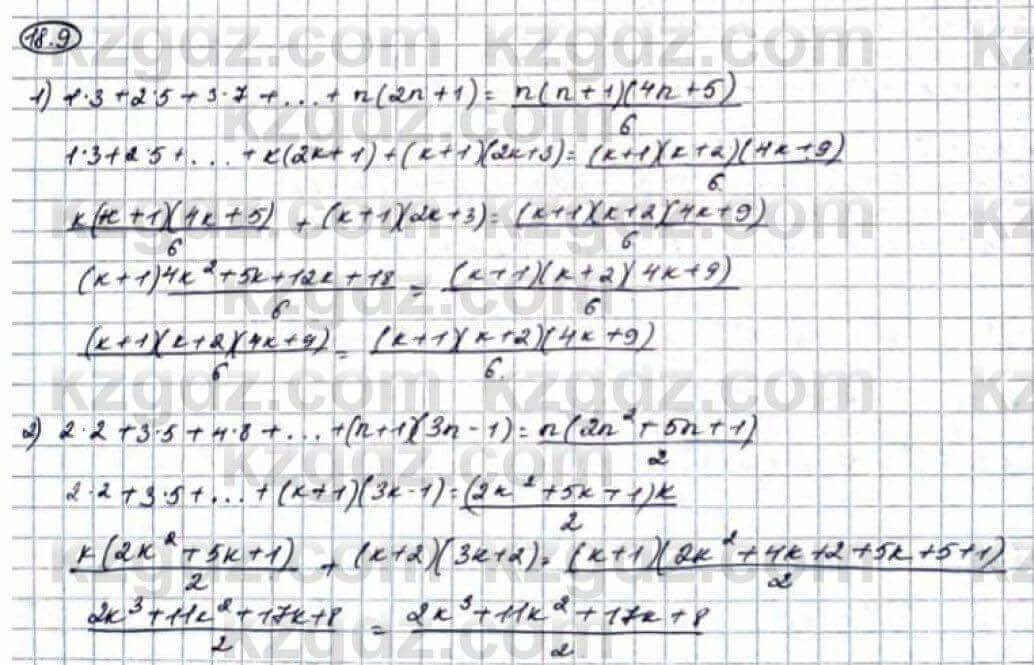 18.9
1) 1·3+2·5+3·7+...+n(2n+1)= n(n+1)(4n+5)/6
1·3+2·5+...+k(2k+1)+(k+1)(2k+3)= (k+1)(k+2)(4k+9)/6
k(k+1)(4k+5)/6 + (k+1)(2k+3)= (k+1)(k+2)(4k+9)/6
(k+1) 4k²+5k+12k+18/6 = (k+1)(k+2)(4k+9)/6
(k+1)(k+2)(4k+9)/6 = (k+1)(k+2)(4k+9)/6.
2) 2·2+3·5+4·8+...+(n+1)(3n-1)= n(2n²+5n+1)/2
2·2+3·5+...+(k+1)(3k-1)= (2k²+5k+1)k/2
k(2k²+5k+1)/2 + (k+2)(3k+2)= (k+1)(2k²+4k+2+5k+5+1)/2
2k³+11k²+17k+8/2 = 2k³+11k²+17k+8/2
kzgdz.com